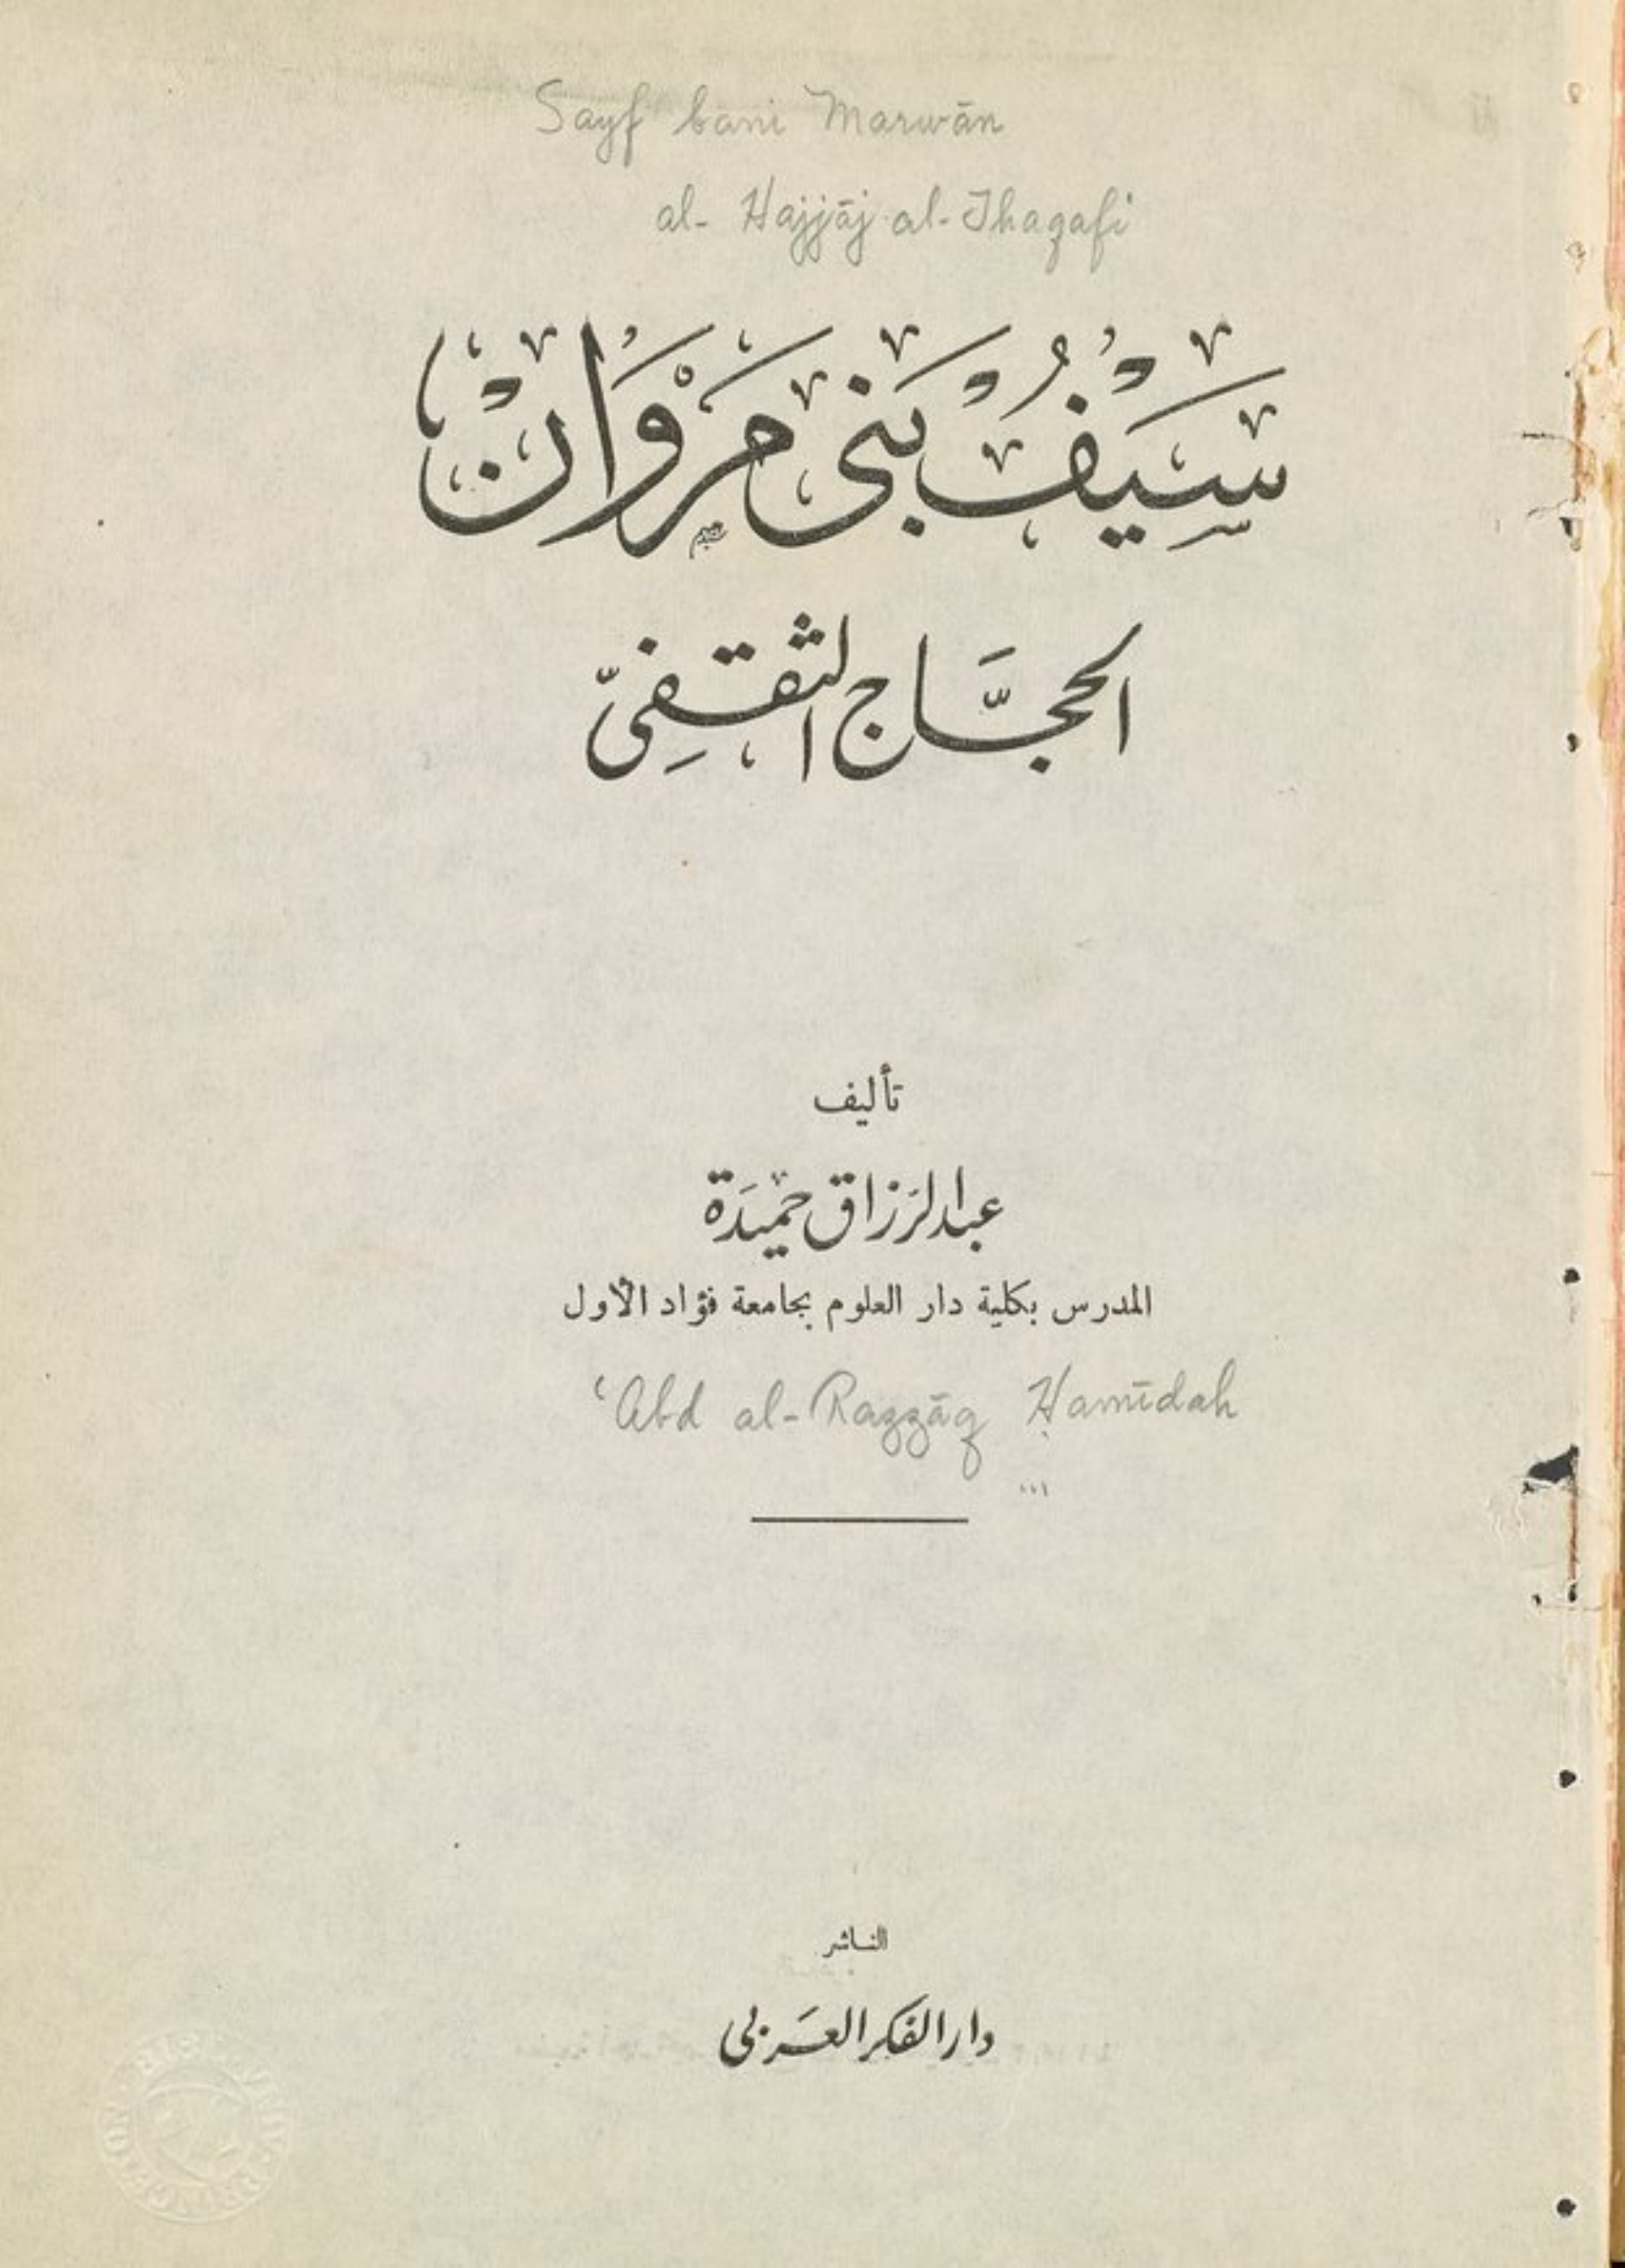 Sayf bani Marwān
al-Hajjāj al-Thaqafi
سَيْفُ بَنى مَرْوَانْ
الحجَّاج الثقفِىّ
تأليف
عبد الرَزاق حميدَة
المدرس بكلية دار العلوم بجامعة فؤاد الأول
‘Abd al-Razzāq Ḥamīdah
الناشر
دار الفكر العَربى